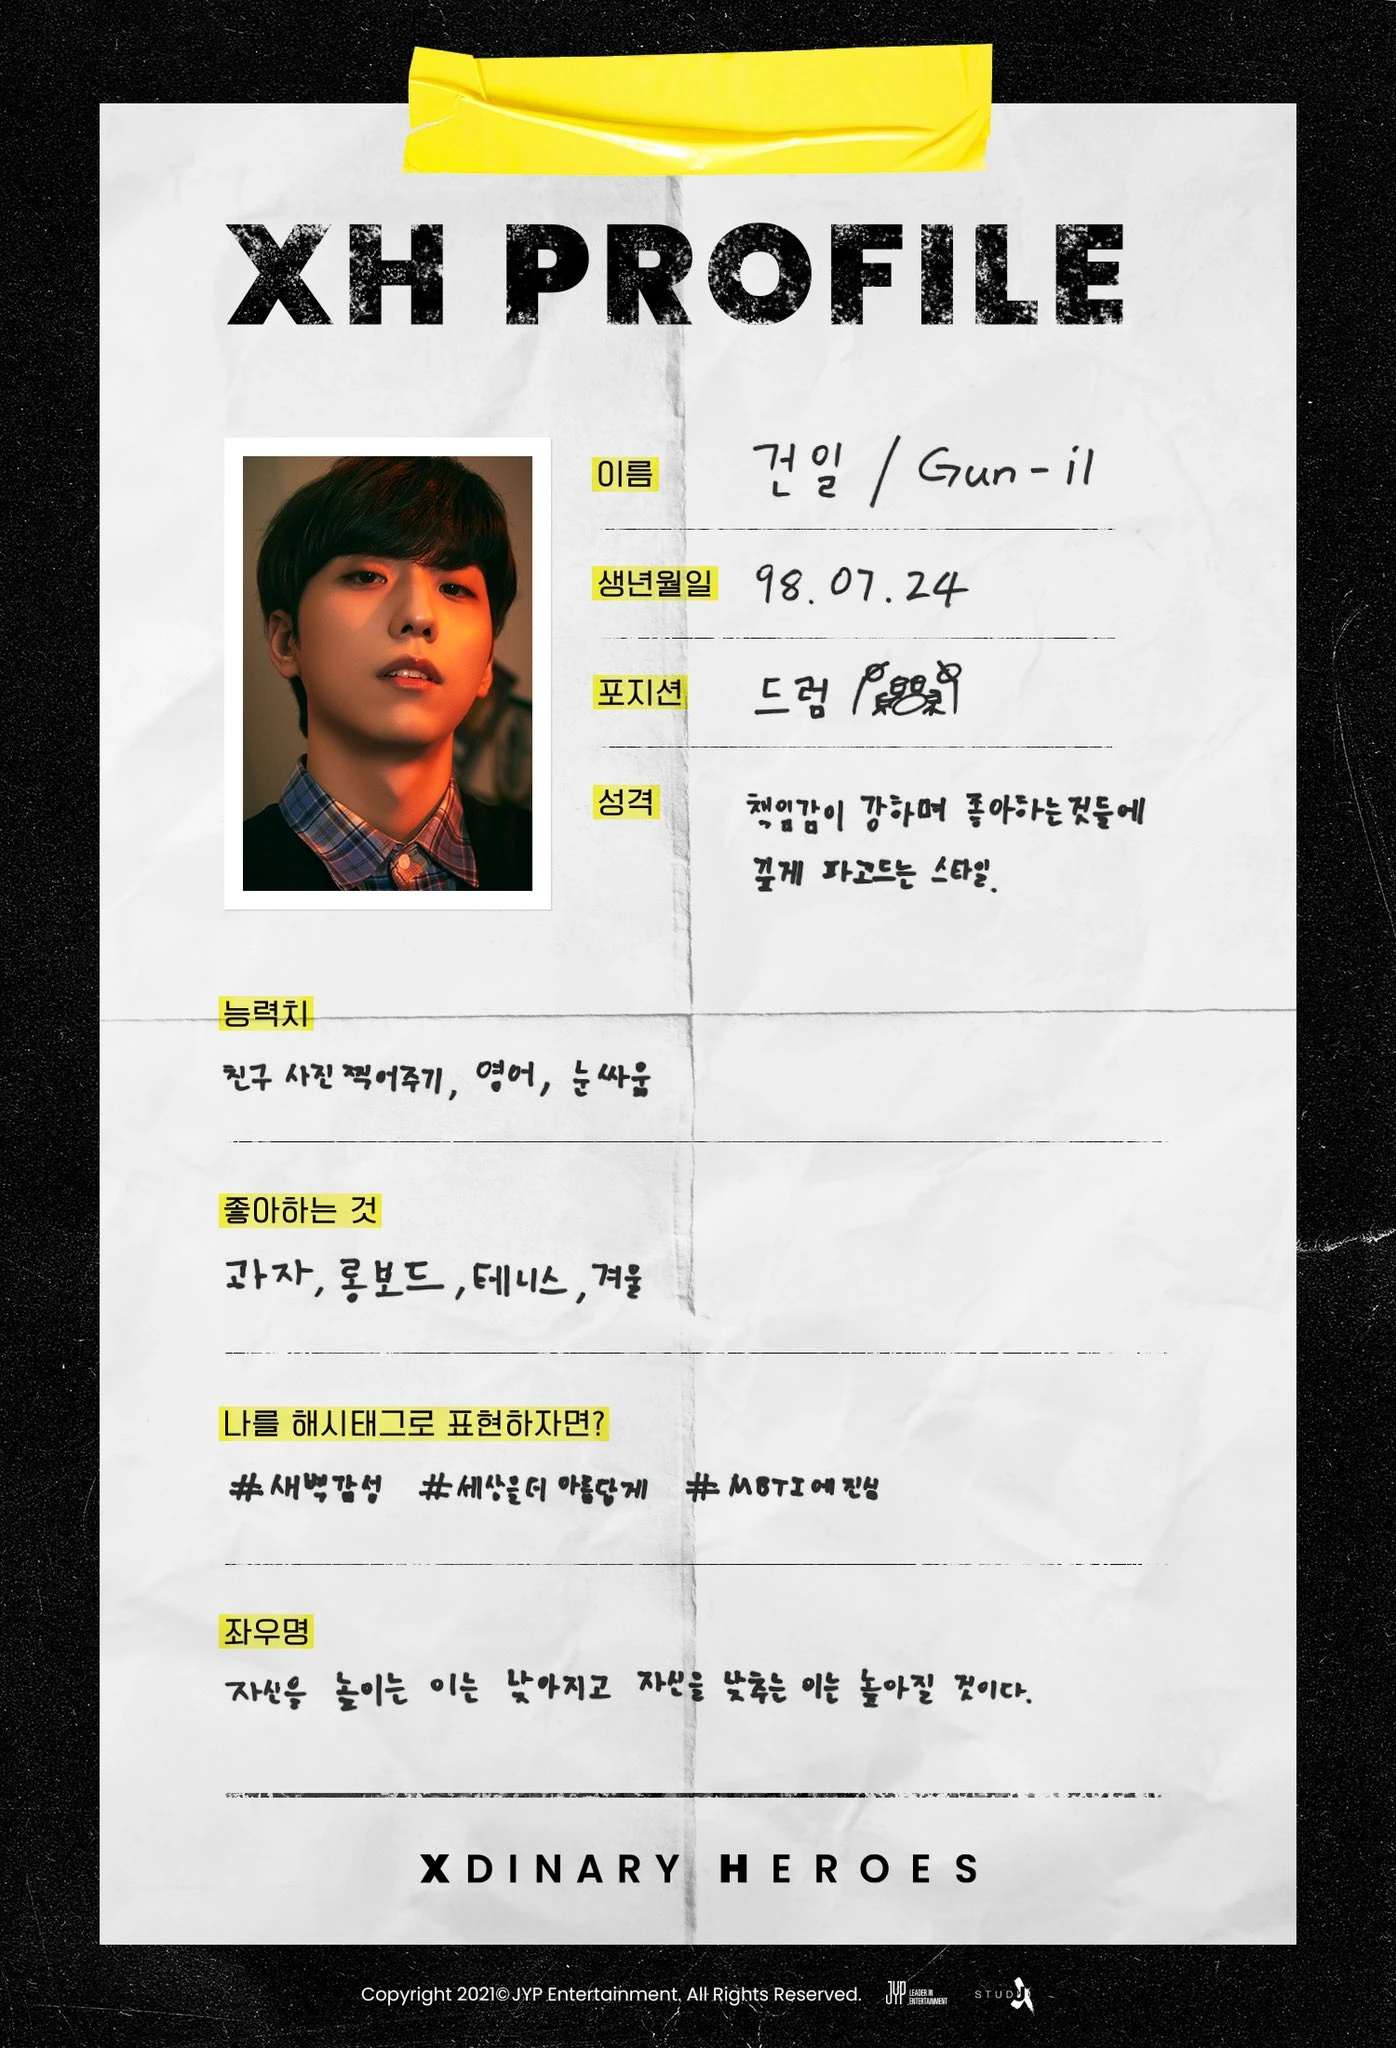 XH PROFILE
이름 건일 / Gun-il
생년월일 98.07.24
포지션 드럼
성격 책임감이 강하며 좋아하는것들에
깊게 파고드는 스타일.
능력치
친구 사진 찍어주기, 영어, 눈싸움
좋아하는 것
과자, 롱보드, 테니스, 겨울
나를 해시태그로 표현하자면?
#새벽감성 #세상을더 아름답게 #MBTI에 진심
좌우명
자신을 높이는 이는 낮아지고 자신을 낮추는 이는 높아질 것이다.
XDINARY HEROES
Copyright 2021© JYP Entertainment. All Rights Reserved. JYP LEADER IN ENTERTAINMENT STUDIO